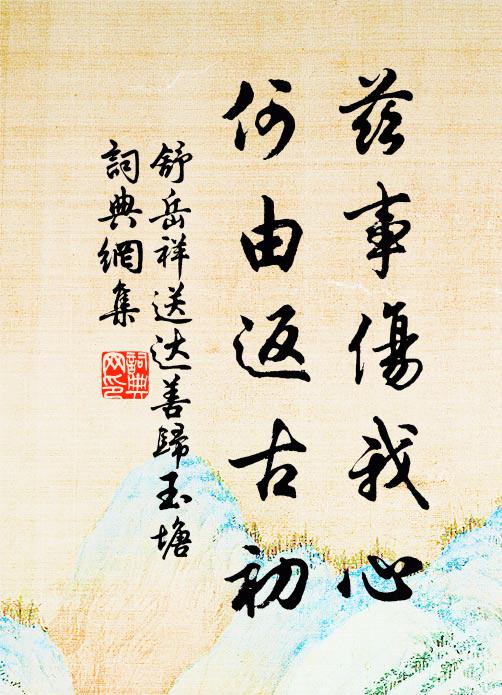 茲事傷我心
何由返古初
舒岳祥送达善歸玉塘
詞典網集
詞典网印